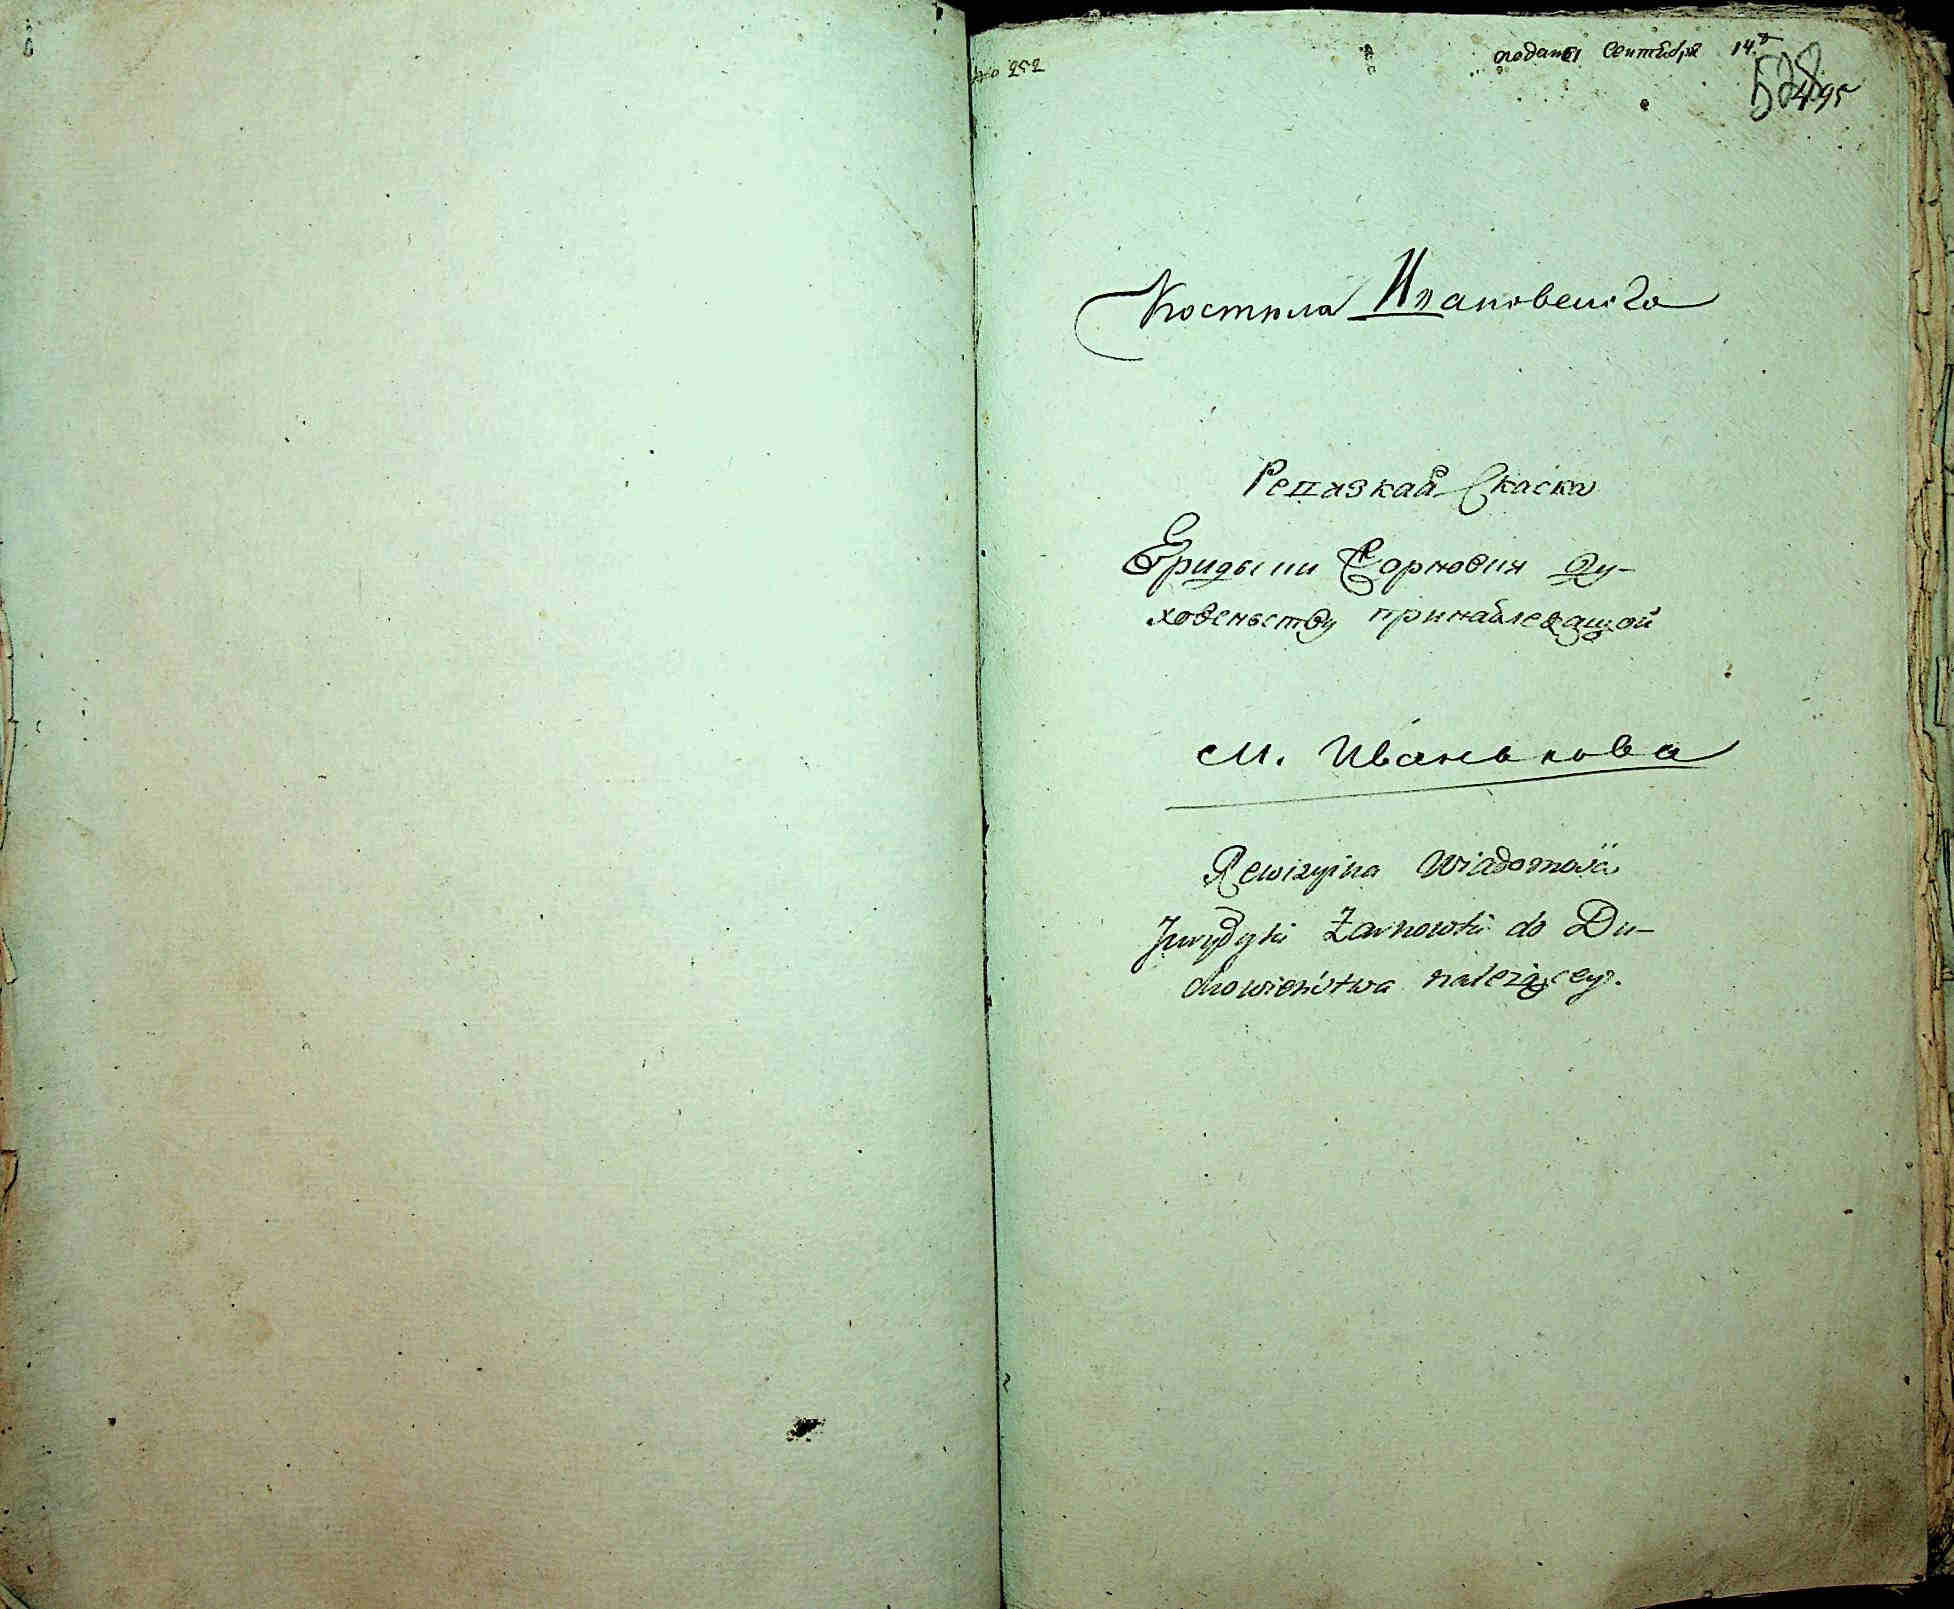 поданы Сентября 14.
495
Костела Ивановского
Ревизкая Скаска
Еридыки Жорновки Ду-
ховеньству принадлежащой
м. Иванькова
Rewizyina Wiadomość
Jurydyki Żarnowki do Du-
chowieństwa należącey.